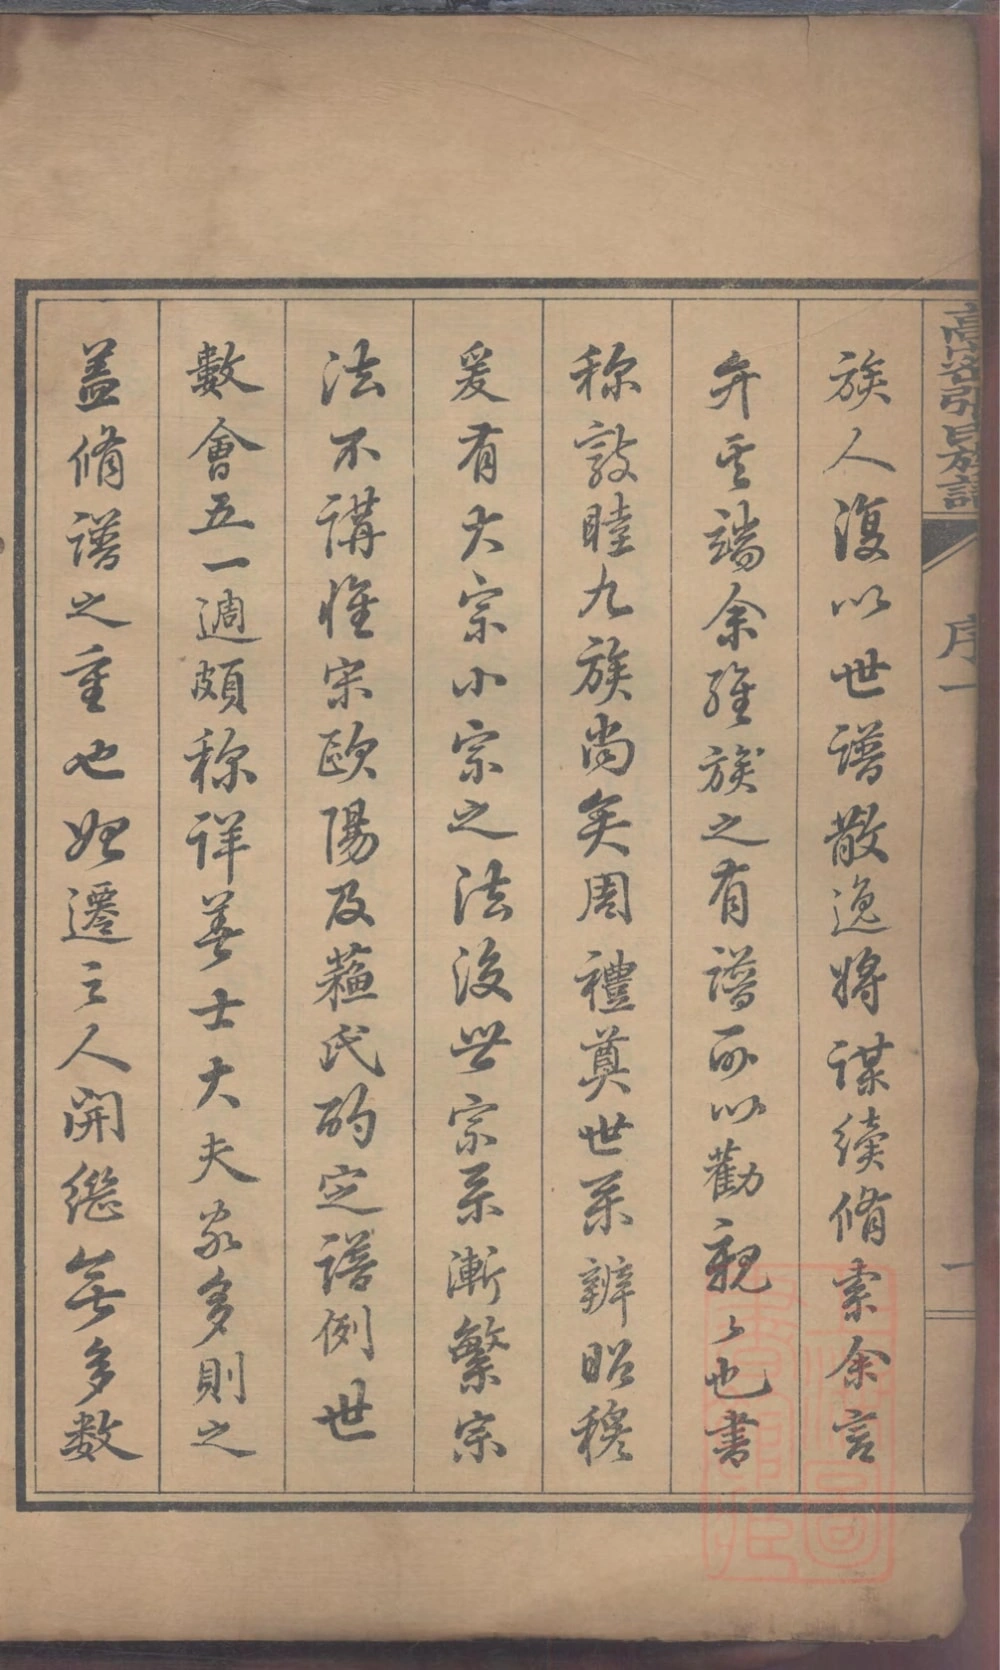 族人復以世譜散逸將謀續脩索余言
弁其端余維族之有譜所以勸親〻也書
称敦睦九族尚矣周禮奠世系辨昭穆
爰有大宗小宗之法後世宗系漸繁宗
法不講惟宋歐陽及蘇氏酌定譜例世
數會五一週頗称詳善士大夫家多則之
蓋脩譜之重也如此遷之人開继無多数
張氏族譜
序一
一